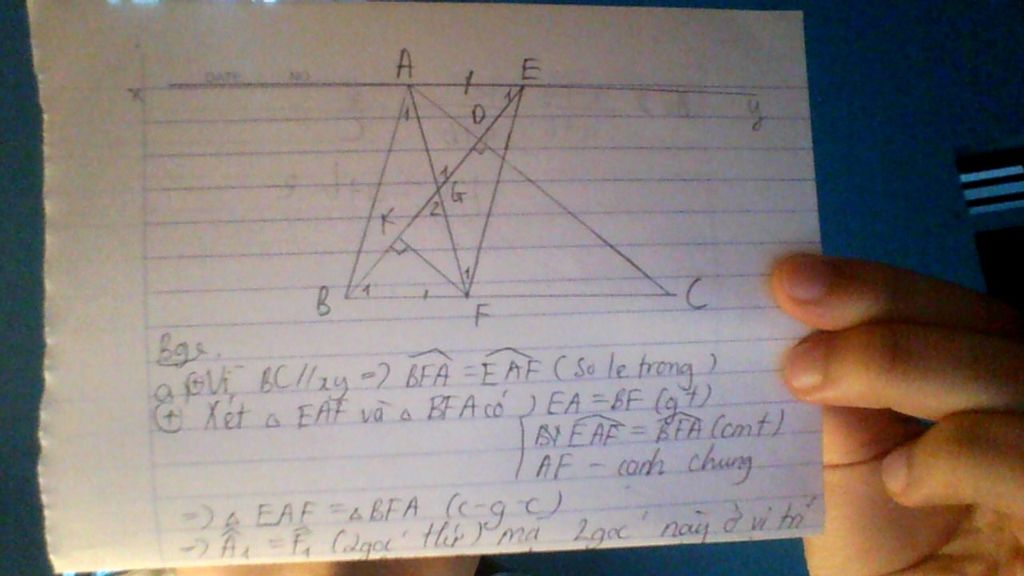 A
E
x
y
1
1
D
1
G
2
K
1
1
B
F
C
Bài
a, Vì BC//xy => BFA = EAF (so le trong)
+ Xét △ EAF và △ BFA có ) EA = BF (gt)
EAF = BFA (cmt)
AF - cạnh chung
=> △ EAF = △ BFA (c-g-c)
=> A1 = F1 (2 góc t/ứ) mà 2 góc này ở vị trí